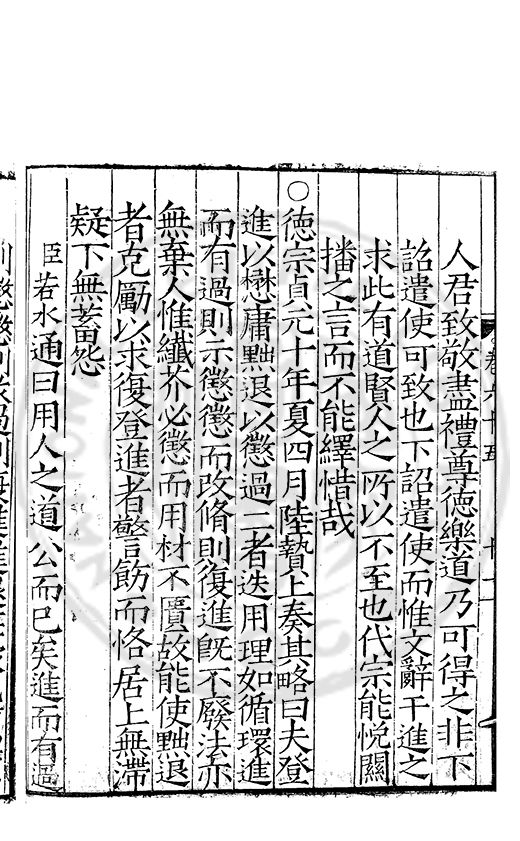 人君致敬盡禮尊德樂道乃可得之非下
詔遣使可致也下詔遣使而惟文辭干進之
求此有道賢人之所以不至也代宗能悅關
播之言而不能繹惜哉
○德宗貞元十年夏四月陸贄上奏其略曰夫登
進以懋庸黜退以懲過二者迭用理如循環進
而有過則示懲懲而改脩則復進既不廢法亦
無棄人惟纖芥必懲而用材不匱故能使黜退
者克勵以求復登進者警飭而恪居上無滯
疑下無蓄怨
臣若水通曰用人之道公而已矣進而有過
卷六十五